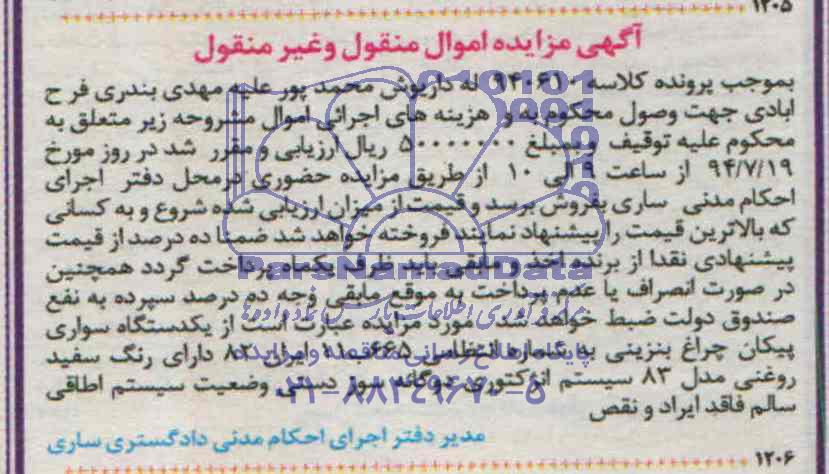 ۱۲۰۵
آگهی مزایده اموال منقول وغیر منقول
بموجب پرونده کلاسه ۹۴۰۶۱۰ له داریوش محمد پور علیه مهدی بندری فر ح
ابادی جهت وصول محکوم به و هزینه های اجرائی اموال مشروحه زیر متعلق به
محکوم علیه توقیف وبمبلغ ۵۰۰۰۰۰۰۰ ریال ارزیابی و مقرر شد در روز مورخ
۹۴/۷/۱۹ از ساعت ۹ الی ۱۰ از طریق مزایده حضوری درمحل دفتر اجرای
احکام مدنی ساری بفروش برسد و قیمت از میزان ارزیابی شده شروع و به کسانی
که بالاترین قیمت را پیشنهاد نمایند فروخته خواهد شد ضمنا ده درصد از قیمت
پیشنهادی نقدا از برنده اخذ و مابقی باید ظرف یکماه پرداخت گردد همچنین
در صورت انصراف یا عدم پرداخت به موقع مابقی وجه ده درصد سپرده به نفع
صندوق دولت ضبط خواهد شد. مورد مزایده عبارت است از یکدستگاه سواری
پیکان چراغ بنزینی به شماره انتظامی ۶۶۵ب۱۱ ایران ۸۳ دارای رنگ سفید
روغنی مدل ۸۳ سیستم انژکتوری دوگانه سوز دستی وضعیت سیستم اطاقی
سالم فاقد ایراد و نقص
مدیر دفتر اجرای احکام مدنی دادگستری ساری
۱۲۰۶
ParsNamadData
مرکز فرآوری اطلاعات پارس نماد داده‌ها
پایگاه اطلاع رسانی مناقصه و مزایده
۰۲۱-۸۸۳۴۹۶۷۰-۵